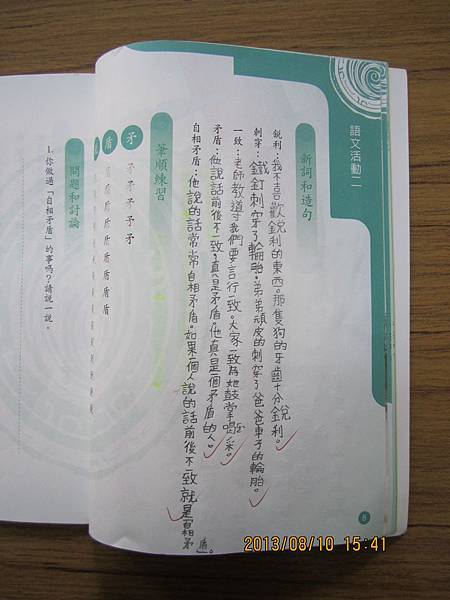 語文活動二
新詞和造句
銳利：我不喜歡銳利的東西。那隻狗的牙齒十分銳利。
刺穿：鐵釘刺穿了輪胎。弟弟頑皮的刺穿了爸爸車子的輪胎。
一致：老師教導我們要言行一致。大家一致為她鼓掌喝采。
矛盾：他說話前後不一致，真是矛盾。他真是一個矛盾的人。
自相矛盾：他說的話常常自相矛盾。如果一個人說的話前後不一致就是自相矛盾。
筆順練習
矛 矛 矛 矛 矛 矛
盾
問題和討論
1. 你做過「自相矛盾」的事嗎？請說一說。
8
2013/08/10 15:41